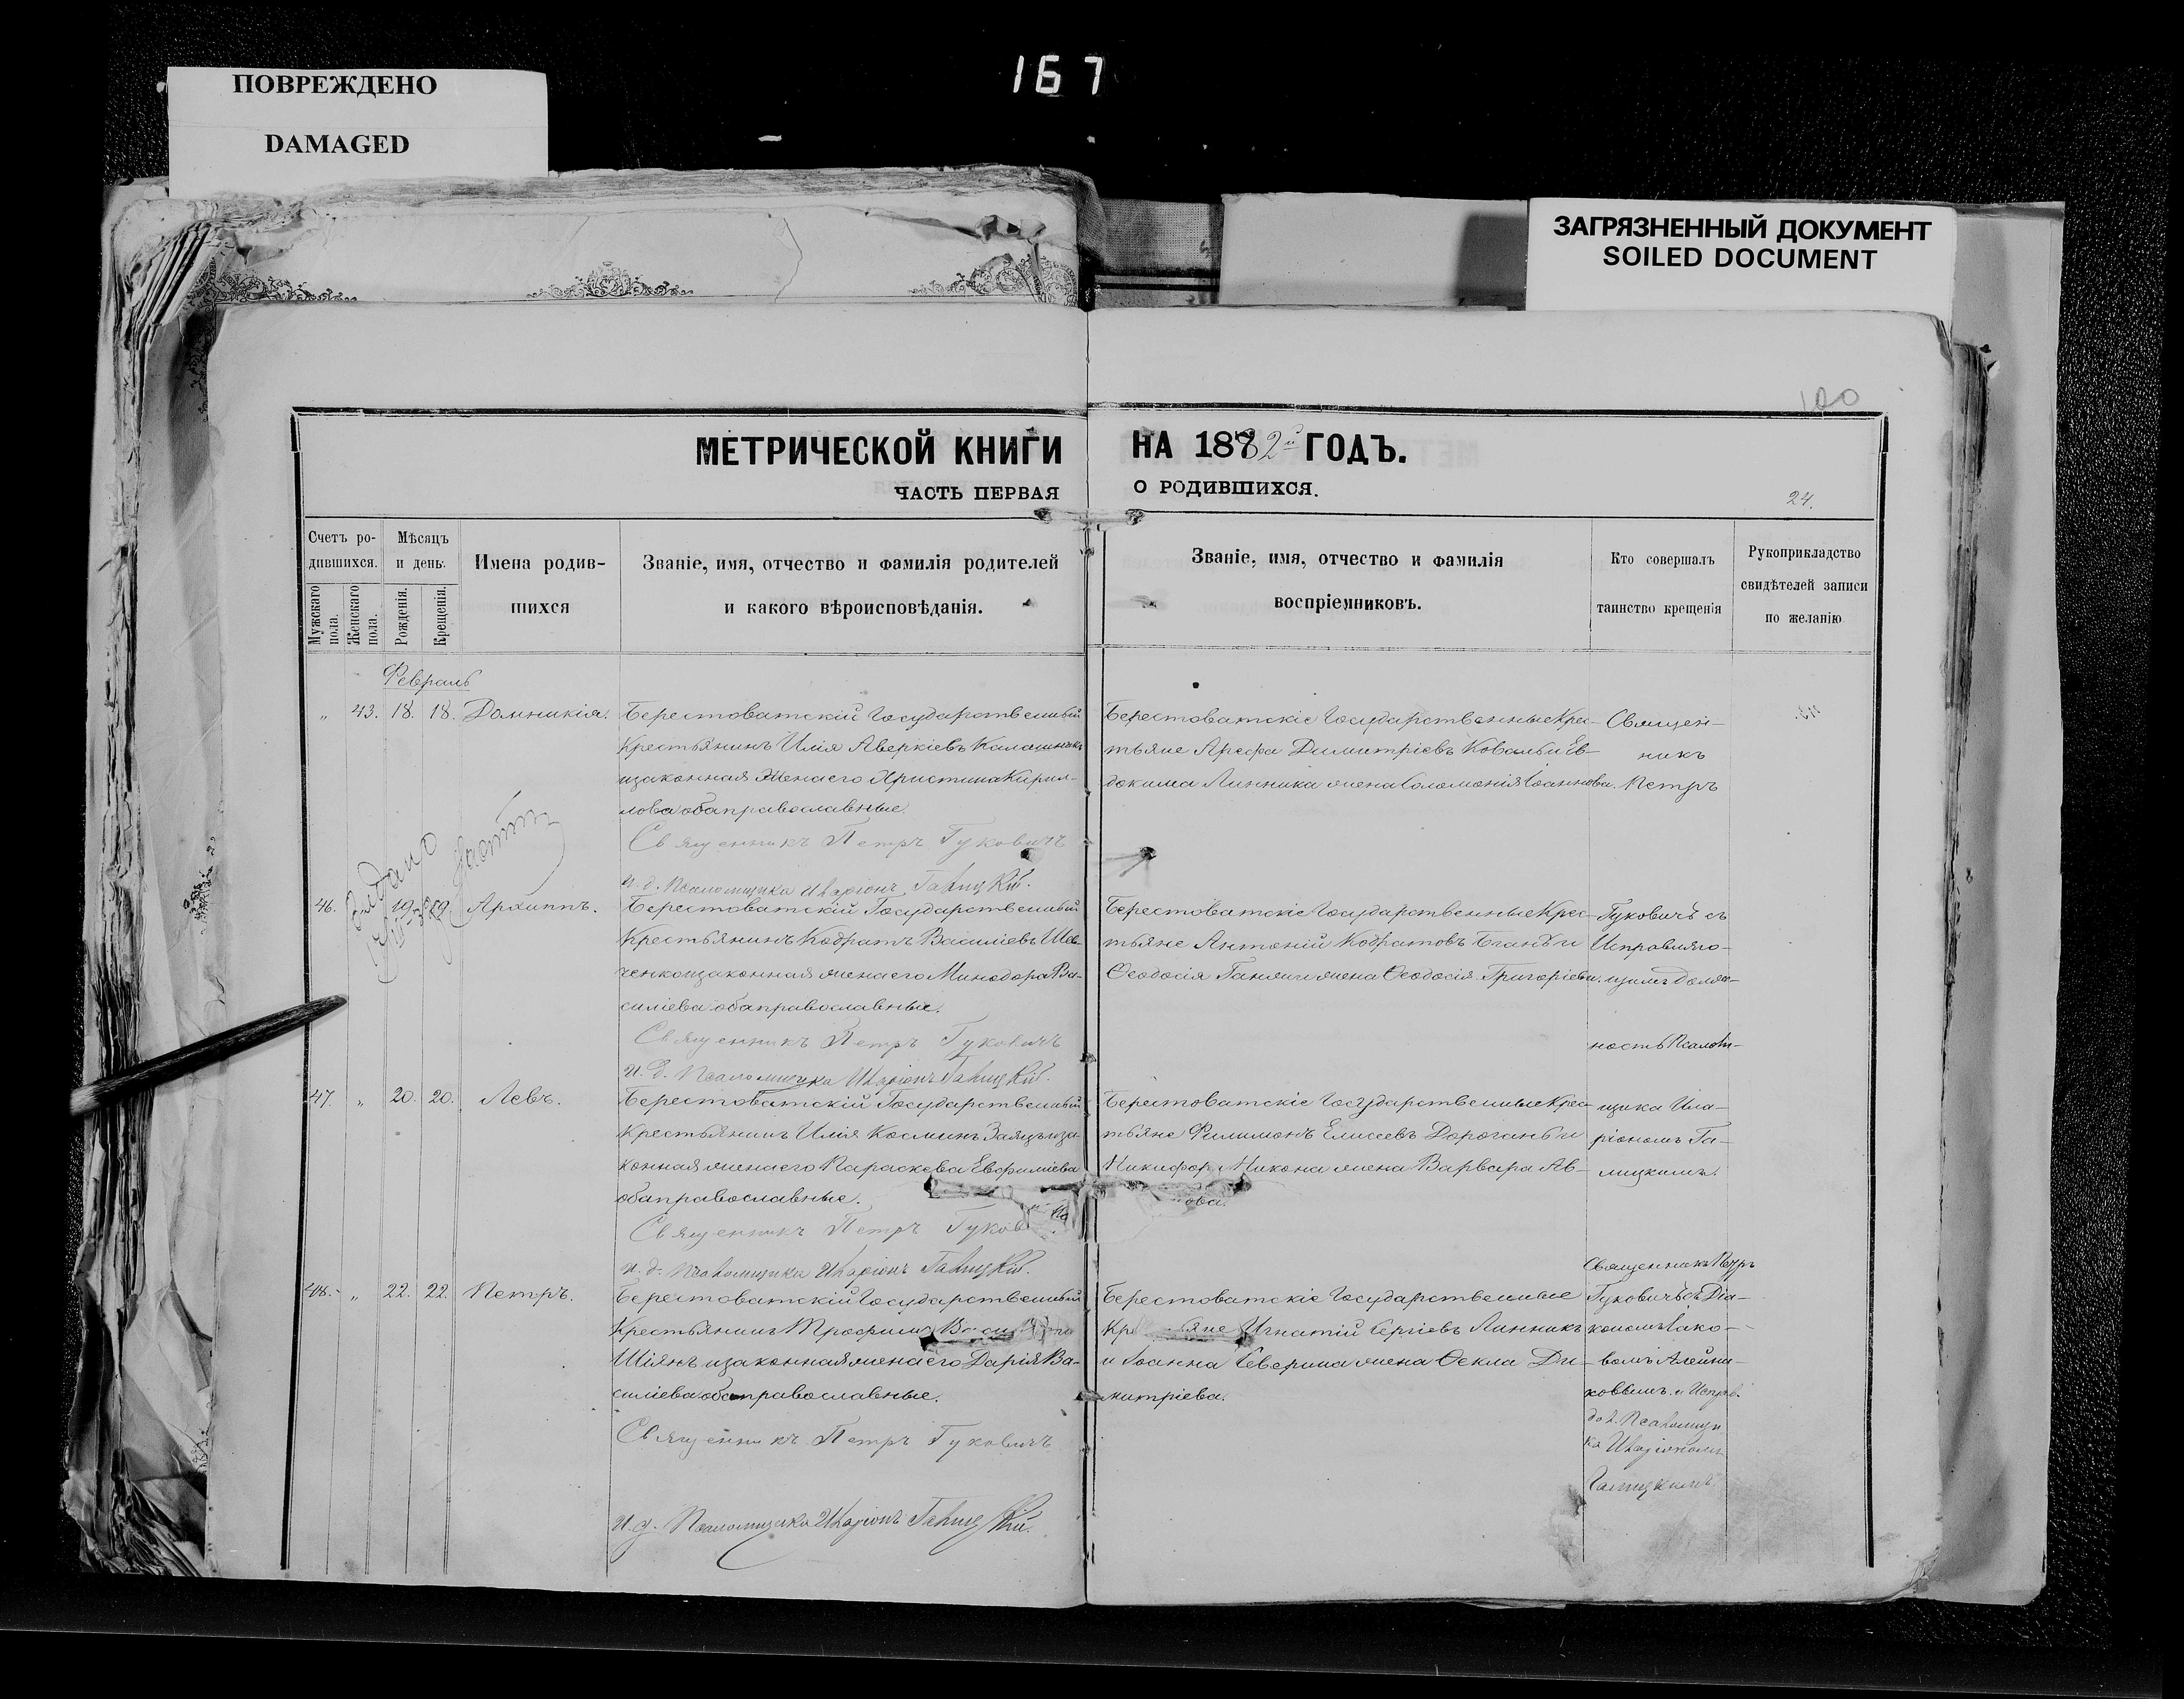 167
ПОВРЕЖДЕНО
DAMAGED
ЗАГРЯЗНЕННЫЙ ДОКУМЕНТ
SOILED DOCUMENT
100
МЕТРИЧЕСКОЙ КНИГИ НА 1882й ГОДЪ.
ЧАСТЬ ПЕРВАЯ О РОДИВШИХСЯ.
24.
Счетъ ро-
дившихся.
Мужскаго пола.
Женскаго пола.
Мѣсяцъ
и день.
Рожденія.
Крещенія.
Имена родив-
шихся
Званіе, имя, отчество и фамилія родителей
и какого вѣроисповѣданія.
Званіе, имя, отчество и фамилія
воспріемниковъ.
Кто совершалъ
таинство крещенія
Рукоприкладство
свидѣтелей записи
по желанію
Февраль
„ 43. 18. 18. Домникія.
Берестоватскій Государственный
Крестьянинъ Илія Аверкіевъ
изаконная Жена его Христина Кирил-
лова оба православные.
Священникъ Петръ Гуковичъ
и. д. Псаломщика Иларіонъ Галицкій.
Берестоватскіе Государственные Крес-
тьяне Арефа Димитріевъ Коваль и Ев-
докима Линника жена Соломонія Іоаннова.
Священ-
никъ
Петръ
Выдано
46. 19. 19. Архиппъ.
Берестоватскій Государственный
Крестьянинъ Кодратъ Василіевъ Шев-
ченко изаконная жена его Минодора Ва-
силіева оба православные.
Священникъ Петръ Гуковичъ
и. д. Псаломщика Иларіонъ Галицкій.
Берестоватскіе Государственные Крес-
тьяне Антоній Кодратовъ и
Ѳеодосія жена Ѳеодосія Григоріева.
Гуковичъ съ
Исправляю-
щимъ долж-
ность Псалом-
47. „ 20. 20. Левъ.
Берестоватскій Государственный
Крестьянинъ Илія Косминъ Заяцъ иза-
конная жена его Параскева Евфиміева
оба православные.
Священникъ Петръ Гуков
и. д. Псаломщика Иларіонъ Галицкій.
Берестоватскіе Государственные Крес-
тьяне Филимонъ Елисеевъ Дорогань и
Никифор Микона жена Варвара Ав-
ова.
щика Ила-
ріономъ Га-
лицкимъ.
48. „ 22. 22. Петръ.
Берестоватскій Государственный
Крестьянинъ Трофимъ
Шіянъ изаконная жена его Дарія Ва-
силіева оба православные.
Священникъ Петръ Гуковичъ
И. д. Псаломщика Иларіонъ Галицкій.
Берестоватскіе Государственные
Кр яне Игнатій Сергіевъ Линникъ
и Іоанна Северина жена Ѳекла Ди-
митріева.
Священникъ Петръ
Гуковичъ съ Діа-
кономъ Іако-
вомъ Алейни-
ковымъ. и Исправ.
дол. Псаломщи
ка Иларіономъ
Галицкимъ